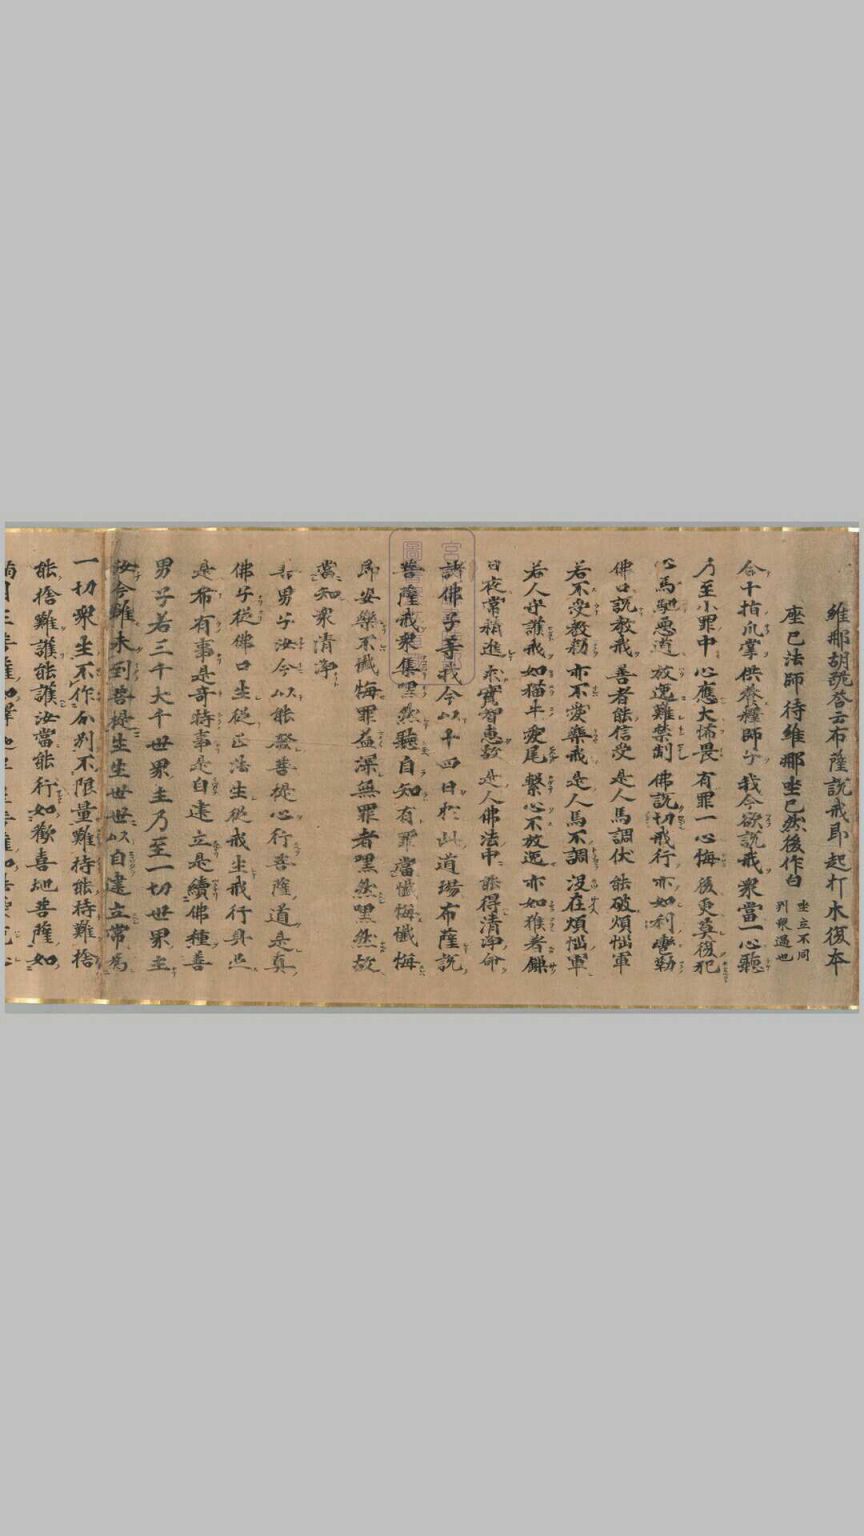 維那胡跪答云布薩說戒即起打木復本
座已法師待維那坐已然後作白 坐立不同
列衆過也
合十指爪掌 供養釋師子 我今欲說戒 衆當一心聽
乃至小罪中 心應大怖畏 有罪一心悔 後更莫復犯
心馬馳惡道 放逸難禁制 佛說切戒行 亦如利轡勒
佛口說教戒 善者能信受 是人馬調伏 能破煩惱軍
若不受教勅 亦不愛樂戒 是人馬不調 沒在煩惱軍
若人守護戒 如猫牛愛尾 繫心不放逸 亦如猴著鏁
日夜常精進 求實智惠故 是人佛法中 能得清淨命
諸佛子等我今以十四日於此道場布薩說
菩薩戒衆集嘿然聽自知有罪當懺悔懺悔
即安樂不懺悔罪益深無罪者嘿然嘿然故
當知衆清淨
善男子汝今以能發菩提心行菩薩道是真
佛子從佛口生從正法生從戒生戒行身也
是希有事是奇特事是自建立是續佛種善
男子若三千大千世界主乃至一切世界主
汝今雖未到菩提生生世世以自建立常為
一切衆生不作分別不限量難待能待難捨
能捨難護能護汝當能行如歡喜地菩薩如